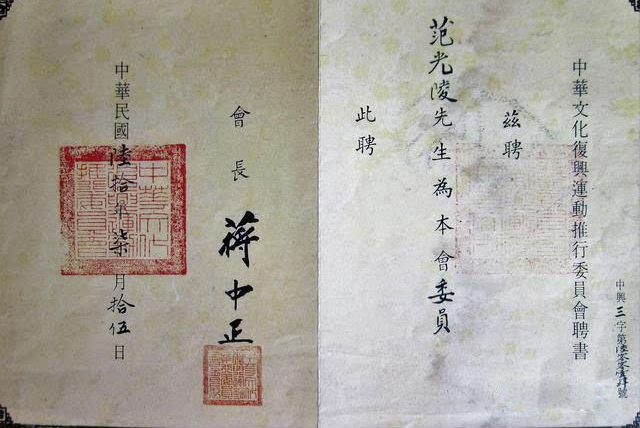 中華文化復興運動推行委員會聘書
中興三字第
號
茲聘
范光陵先生為本會委員
此聘
會長
蔣中正
中華民國陸拾年柒月拾伍日